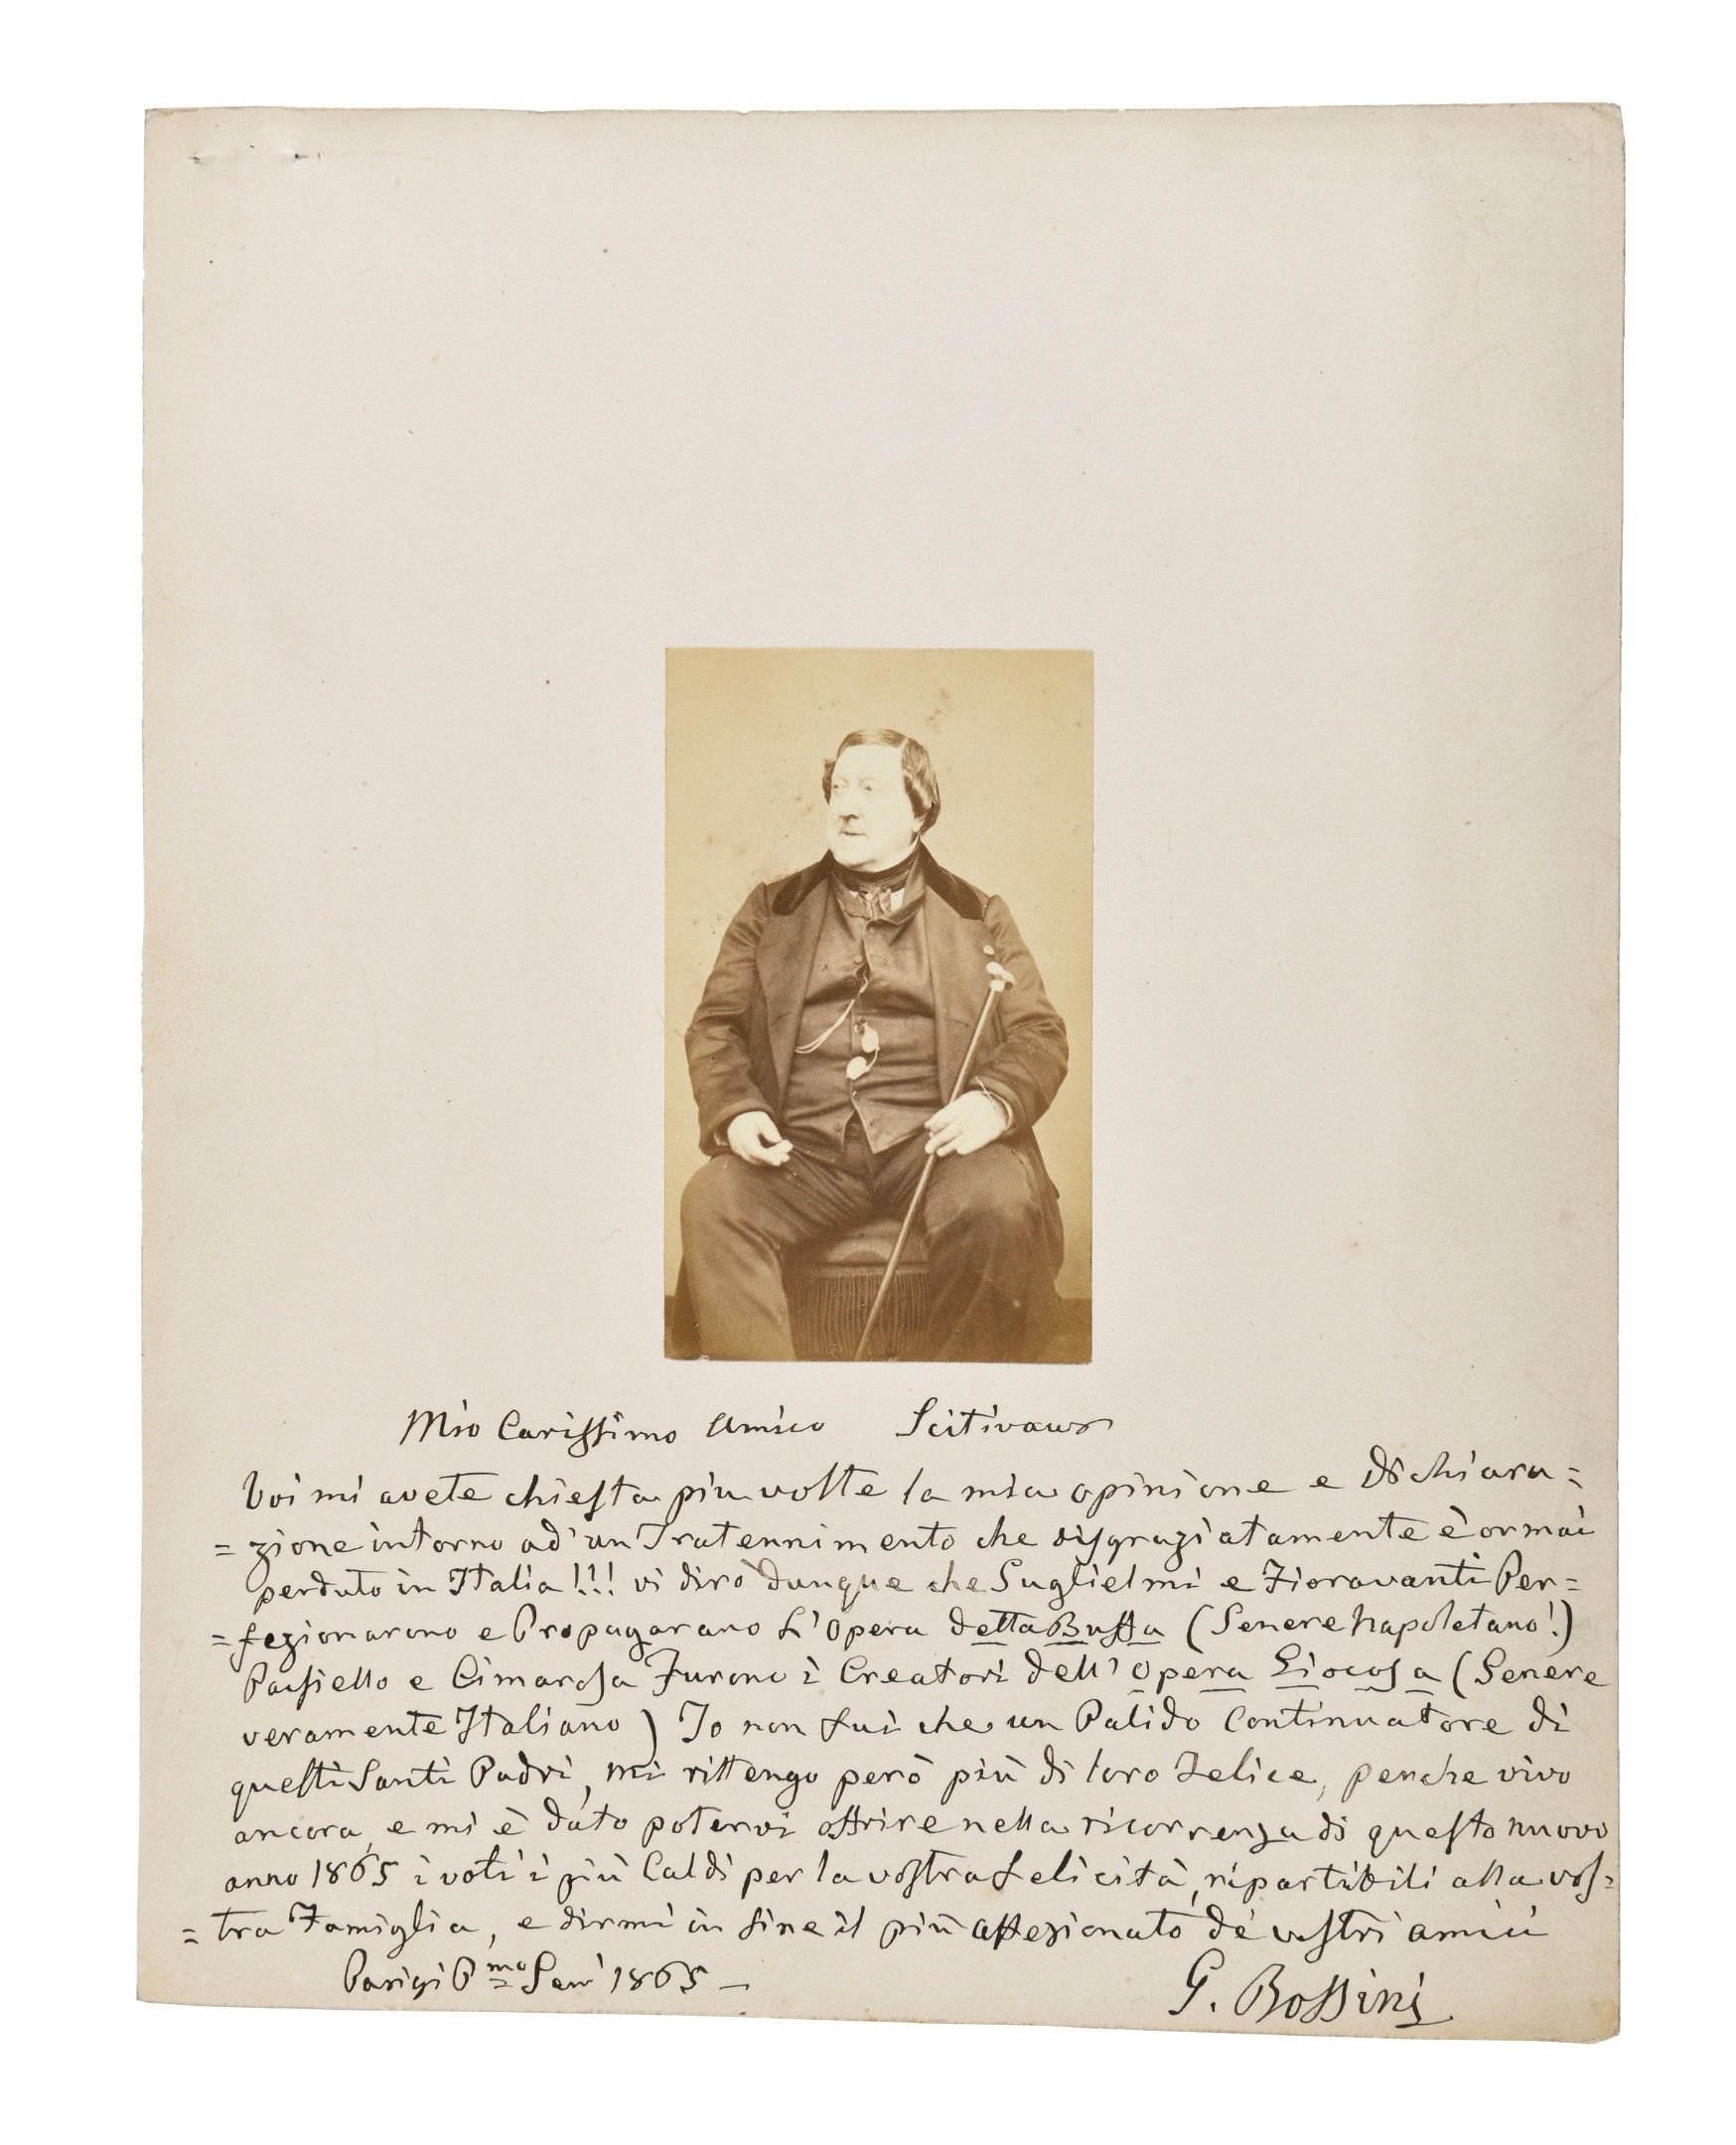 Mio Carissimo Amico Scitivaux
Voi mi avete chiesta piu volte la mia opinione e Dichiara=
=zione intorno ad'un Tratennimento che disgraziatamente è ormai
perduto in Italia!!! vi dirò dunque che Guglielmi e Fioravanti Per=
=fezionarono e Propagarano L'Opera detta Buffa (Genere Napoletano!)
Paisiello e Cimarosa Furono i Creatori dell'Opera Giocosa (Genere
veramente Italiano) Io non fui che un Palido Continuatore di
questi Santi Padri, mi rittengo però più di loro Felice, perche vivo
ancora, e mi è dato potervi offrire nella ricorrenza di questo nuovo
anno 1865 i voti i più Caldi per la vostra felicità, ripartibili alla vos=
=tra Famiglia, e dirmi in fine il più affezionato de' vostri amici
Parigi P.mo Gen.' 1865 —
G. Rossini